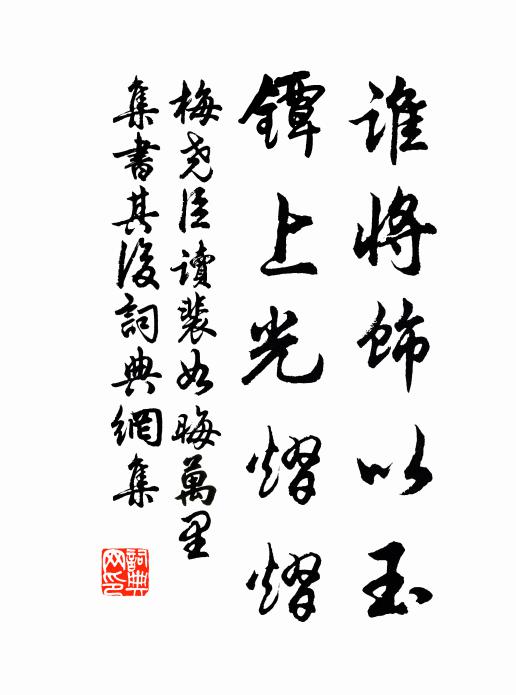 誰將飾以玉
鐔上光熠熠
梅堯臣讀裴如晦萬里
集書其後詞典網集
詞典網印